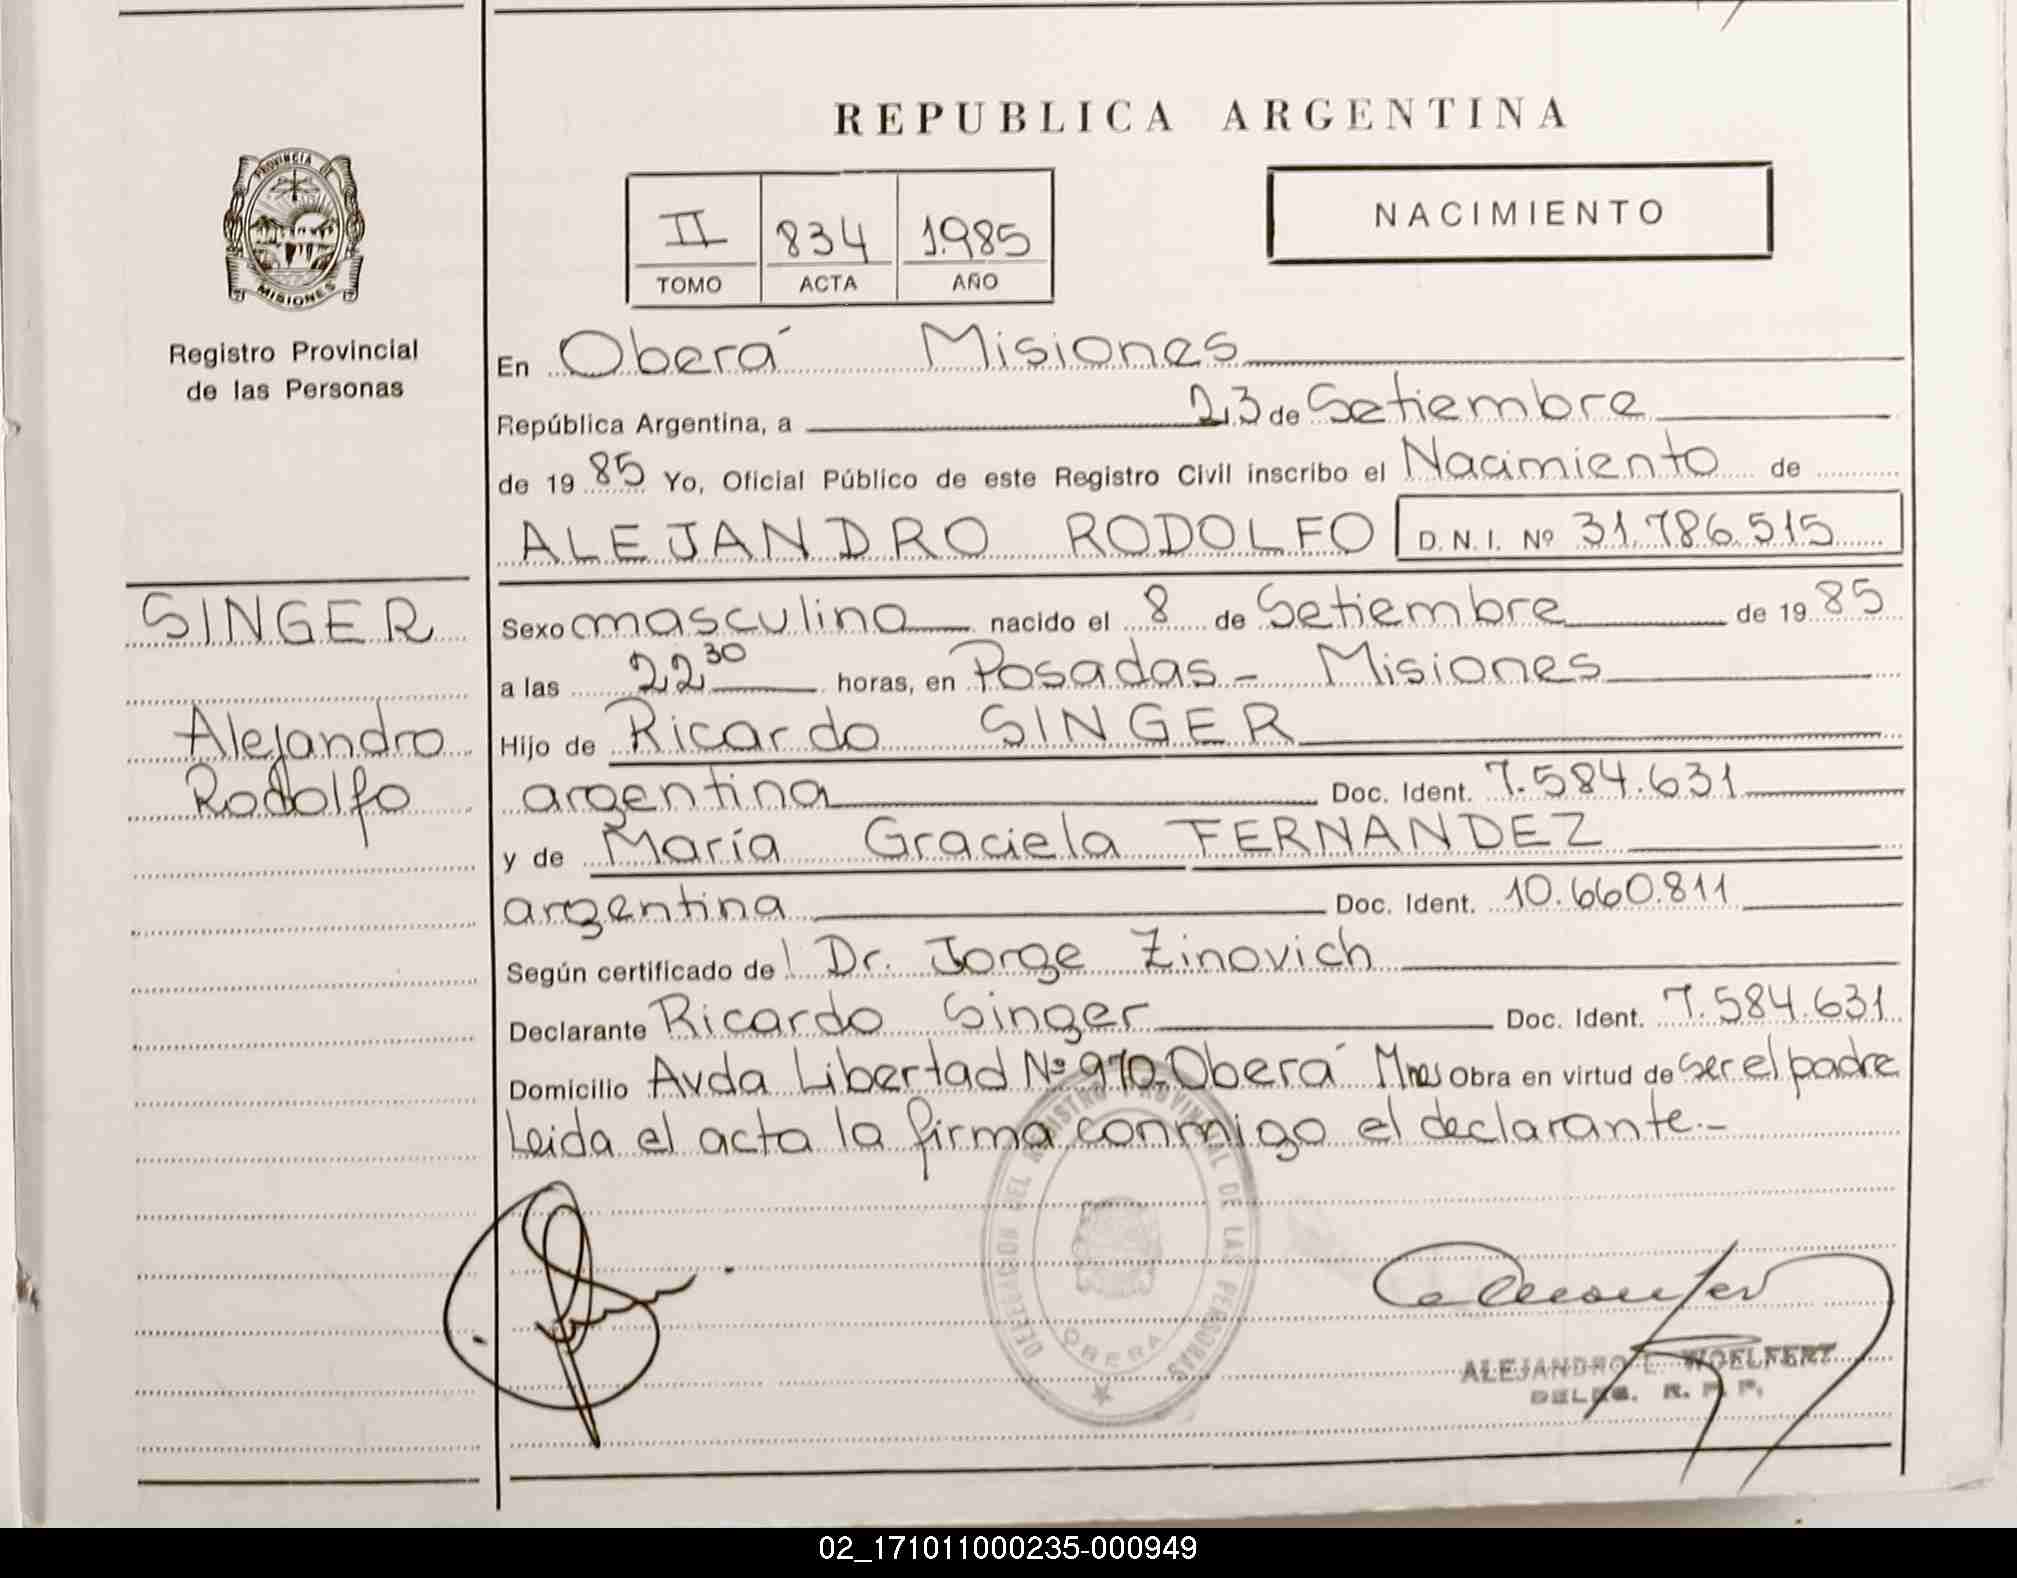 REPUBLICA ARGENTINA
PROVINCIA DE
MISIONES
Registro Provincial
de las Personas
II 834 1.985
TOMO ACTA AÑO
NACIMIENTO
En Oberá Misiones
República Argentina, a 23 de Setiembre
de 19 85 Yo, Oficial Público de este Registro Civil inscribo el Nacimiento de
ALEJANDRO RODOLFO D.N.I. Nº 31.786.515
SINGER
Alejandro
Rodolfo
Sexo masculino nacido el 8 de Setiembre de 19 85
a las 22 30 horas, en Posadas - Misiones
Hijo de Ricardo SINGER
argentina Doc. Ident. 7.584.631
y de María Graciela FERNANDEZ
argentina Doc. Ident. 10.660.811
Según certificado de l Dr. Jorge Zinovich
Declarante Ricardo Singer Doc. Ident. 7.584.631
Domicilio Avda Libertad Nº 970 - Oberá Mnes Obra en virtud de ser el padre
Leida el acta la firma conmigo el declarante.-
DELEGACION DEL REGISTRO PROVINCIAL DE LAS PERSONAS
OBERA
ALEJANDRO L. WOELFERT
DELEG. R. P. P.
02_171011000235-000949